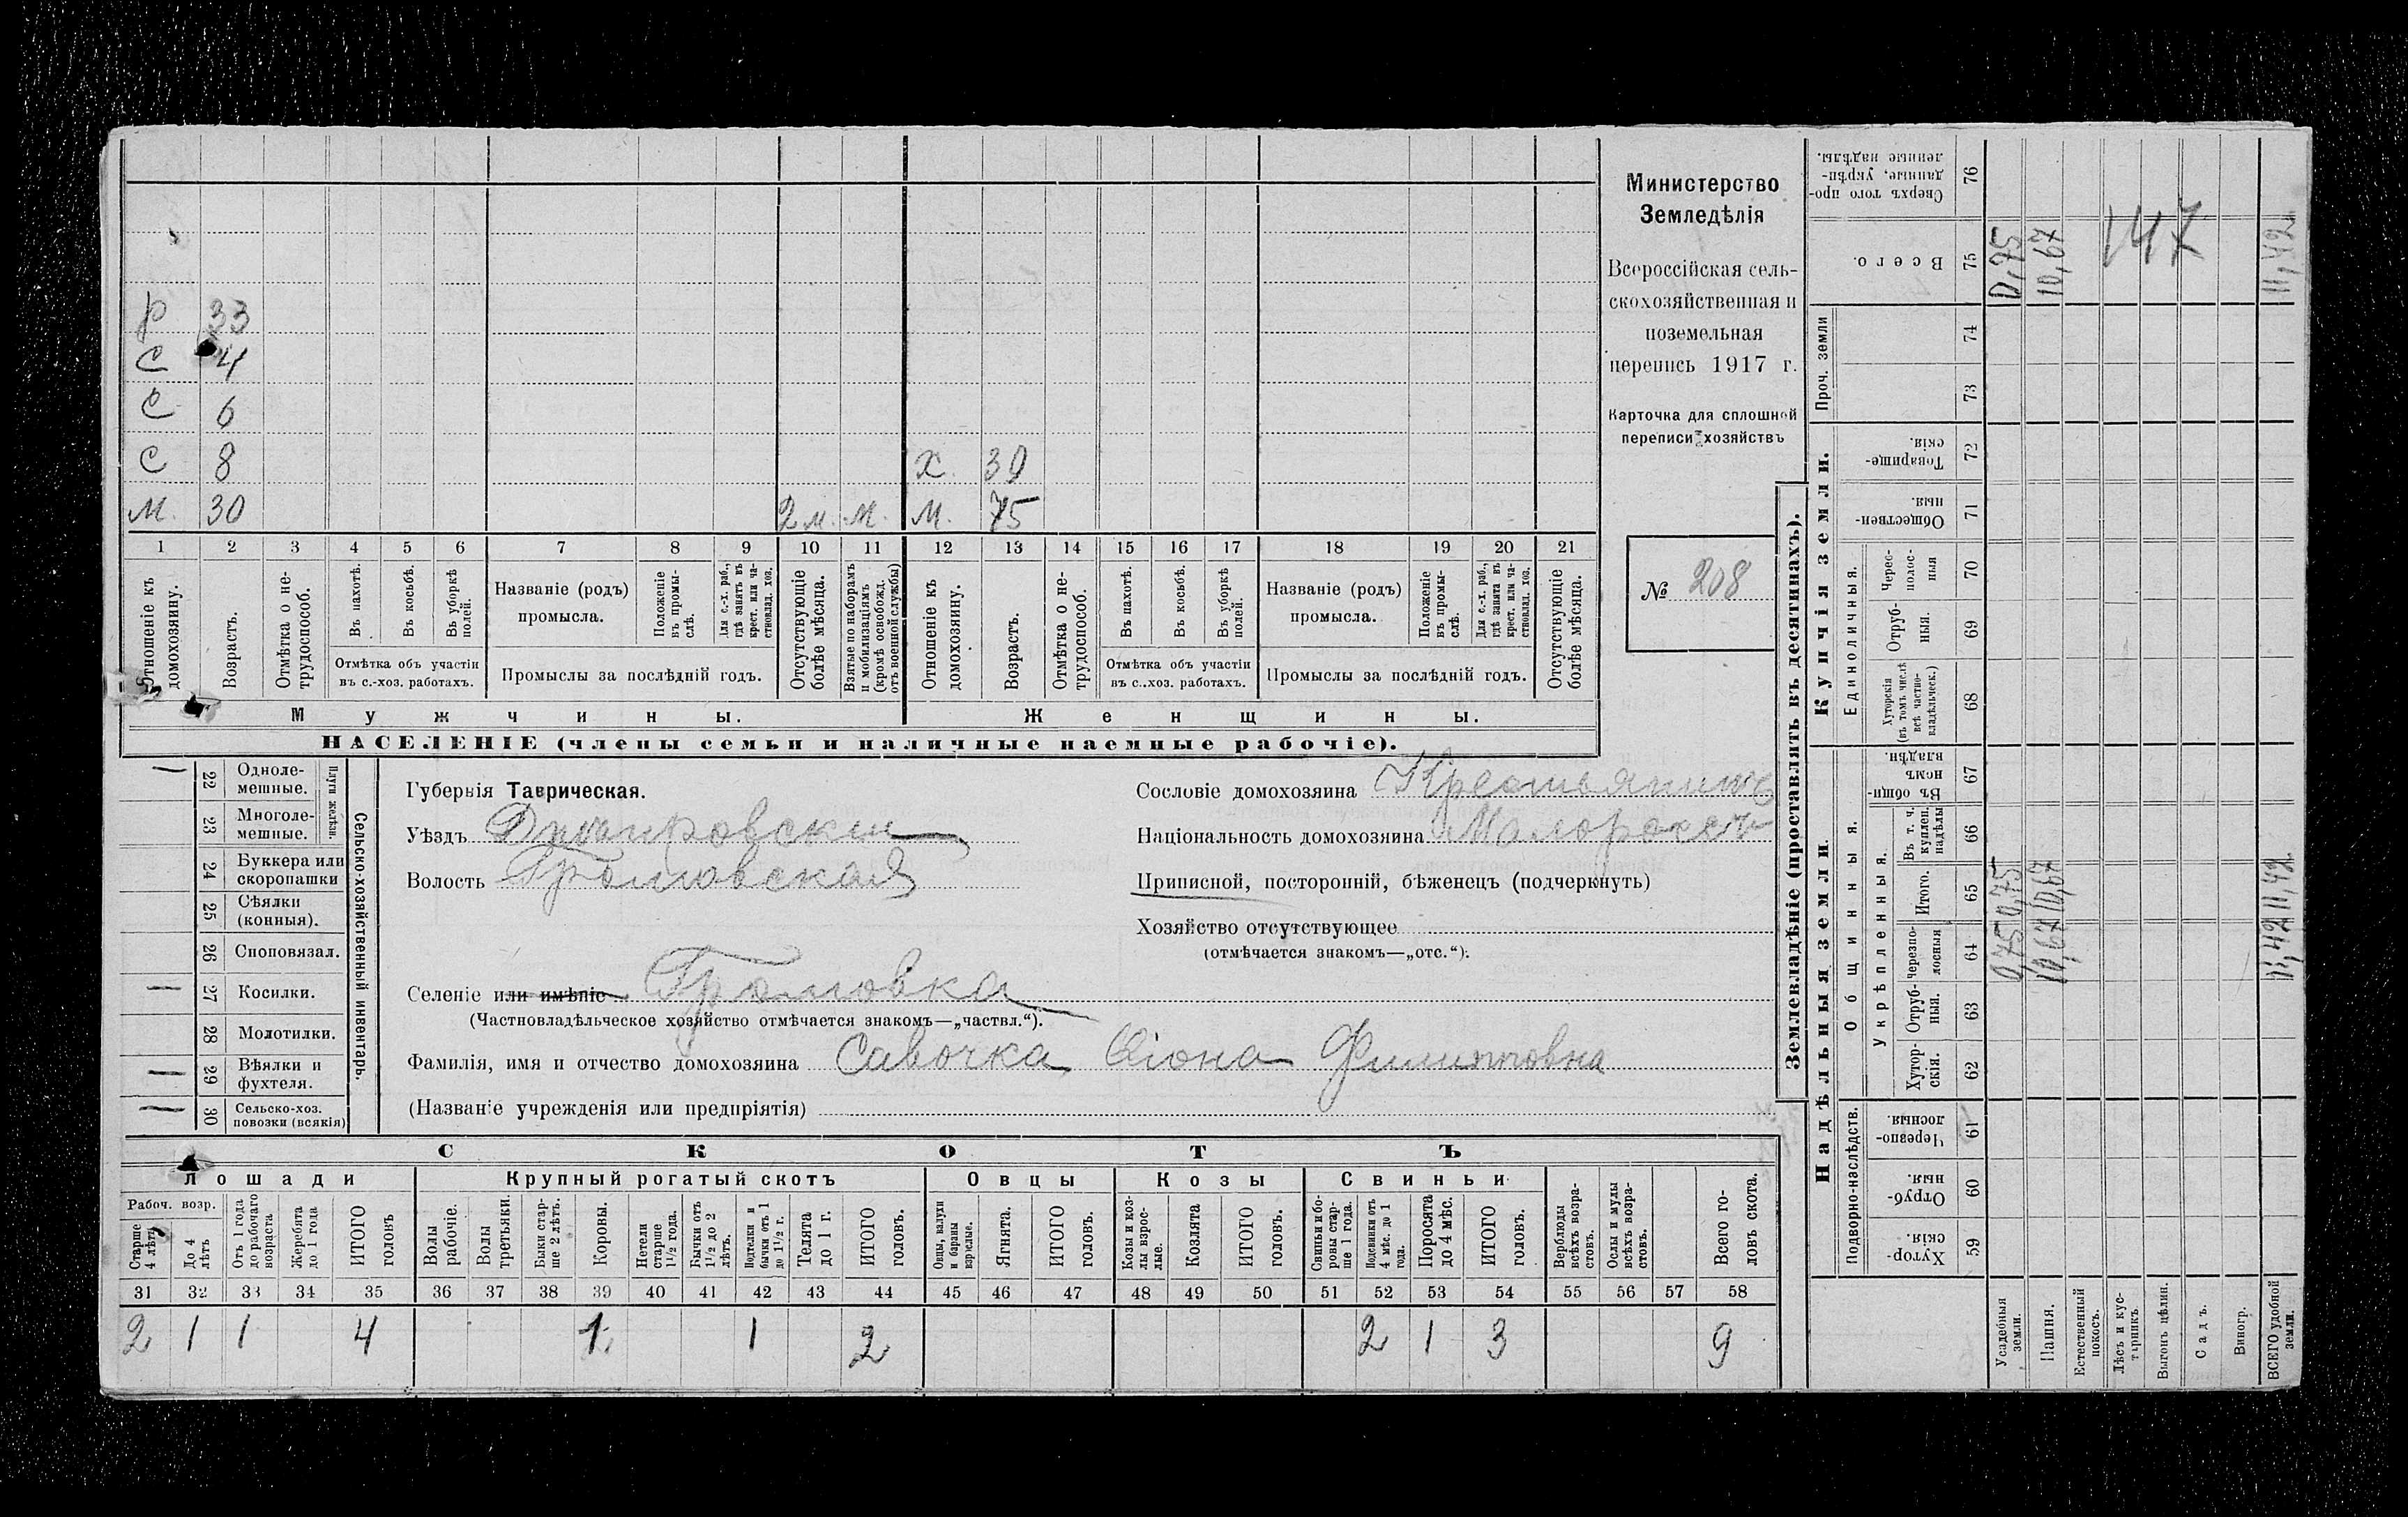 р 33
с 4
с 6
с 8 х. 30
м. 30 2 м. м. м. 75
1 2 3 4 5 6 7 8 9 10 11 12 13 14 15 16 17 18 19 20 21
Отношеніе къ домохозяину.
Возрастъ.
Отмѣтка о не-
трудоспособ.
Въ пахотѣ.
Въ косьбѣ.
Въ уборкѣ полей.
Отмѣтка объ участіи
въ с.-хоз. работахъ.
Названіе (родъ)
промысла.
Положеніе въ промы-
слѣ.
Для с.-х. раб., гдѣ занятъ въ крест. или ча-
стновлад. хоз.
Промыслы за послѣдній годъ.
Отсутствующіе болѣе мѣсяца.
Взятые по наборамъ и мобилизаціямъ (кромѣ освобожд. отъ военной службы)
Отношеніе къ домохозяину.
Возрастъ.
Отмѣтка о не-
трудоспособ.
Въ пахотѣ.
Въ косьбѣ.
Въ уборкѣ полей.
Отмѣтка объ участіи
въ с..хоз. работахъ.
Названіе (родъ)
промысла.
Положеніе въ промы-
слѣ.
Для с.-х. раб., гдѣ занята въ крест. или ча-
стновлад. хоз.
Промыслы за послѣдній годъ.
Отсутствующіе болѣе мѣсяца.
Мужчины. Женщины.
НАСЕЛЕНІЕ (члены семьи и наличные наемные рабочіе).
Министерство
Земледѣлія
Всероссійская сель-
скохозяйственная и
поземельная
перепись 1917 г.
Карточка для сплошной
переписи хозяйствъ
№ 208
Сельско-хозяйственный инвентарь.
Плуги желѣзн.
— 22 Одноле-
мешные.
23 Многоле-
мешные.
24 Буккера или
скоропашки
25 Сѣялки
(конныя).
26 Сноповязал.
— 27 Косилки.
28 Молотилки.
— 29 Вѣялки и
фухтеля.
— 30 Сельско-хоз.
повозки (всякія)
Губернія Таврическая.
Уѣздъ Днѣпровскій
Волость Громовская
Селеніе или имѣніе Громовка
(Частновладѣльческое хозяйство отмѣчается знакомъ—„частвл.“).
Фамилія, имя и отчество домохозяина Савочка Филипповна
(Названіе учрежденія или предпріятія)
Сословіе домохозяина Крестьянинъ
Національность домохозяина Малороссъ
Приписной, посторонній, бѣженецъ (подчеркнуть)
Хозяйство отсутствующее
(отмѣчается знакомъ—„отс.“).
СКОТЪ
Лошади Крупный рогатый скотъ Овцы Козы Свиньи
Рабоч. возр.
Старше 4 лѣтъ
До 4 лѣтъ
Отъ 1 года до рабочаго возраста
Жеребята до 1 года
ИТОГО головъ
Волы рабочіе.
Волы третьяки.
Быки стар-
ше 2 лѣтъ.
Коровы.
Нетели старше 1½ года.
Бычки отъ 1½ до 2 лѣтъ.
Подтелки и бычки отъ 1 до 1½ г.
Телята до 1 г.
ИТОГО головъ.
Овцы, валухи и бараны взрослые.
Ягнята.
ИТОГО головъ.
Козы и коз-
лы взрос-
лые.
Козлята
ИТОГО головъ.
Свиньи и бо-
ровы стар-
ше 1 года.
Подсвинки отъ 4 мѣс. до 1 года.
Поросята до 4 мѣс.
ИТОГО головъ.
Верблюды всѣхъ возра-
стовъ.
Ослы и мулы всѣхъ возра-
стовъ.
Всего го-
ловъ скота.
31 32 33 34 35 36 37 38 39 40 41 42 43 44 45 46 47 48 49 50 51 52 53 54 55 56 57 58
2 1 1 4 1 1 2 2 1 3 9
Землевладѣніе (проставлять въ десятинахъ).
Надѣльныя земли.
Купчія земли.
Проч. земли
Подворно-наслѣдств.
Общинныя.
Укрѣпленныя.
Единоличныя.
Хутор-
скія. 59
Отруб-
ныя. 60
Черезпо-
лосныя. 61
Хутор-
скія. 62
Отруб-
ныя. 63
Черезпо-
лосныя 64
Итого. 65
Въ т. ч. куплен. надѣлы 66
Въ общи-
номъ владѣн. 67
Хуторскія (въ томъ числѣ всѣ частно-
владѣльческ.) 68
Отруб-
ныя. 69
Черес-
полос-
ныя 70
Обществен-
ныя. 71
Товарище-
скія. 72
73
74
Всего. 75
Сверхъ того про-
данные, укрѣп-
ленные надѣлы. 76
Усадебныя земли. 0,75 0,75 0,75
Пашня. 10,67 10,67 10,67
Естественный покосъ.
Лѣсъ и кус-
тарникъ.
Выгонъ цѣлин.
Садъ.
Виногр.
ВСЕГО удобной земли. 11,42 11,42 11,42
147